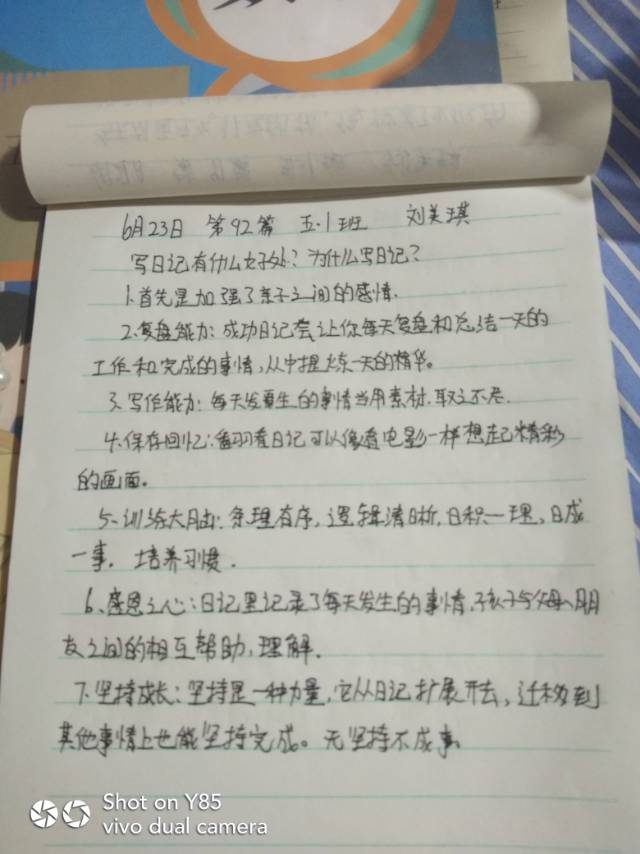 6月23日 第92篇 五·1班 刘美琪
写日记有什么好处？为什么写日记？
1.首先是加强了亲子之间的感情.
2.复盘能力：成功日记会让你每天复盘和总结一天的
工作和完成的事情，从中提炼一天的精华。
3、写作能力：每天发生的事情当用素材.取之不尽.
4.保存回忆：翻看日记可以像看电影一样想起精彩
的画面。
5、训练大脑：条理有序，逻辑清晰，日积一理，日成
一事.培养习惯.
6、感恩之心：日记里记录了每天发生的事情，孩子与父母、朋
友之间的相互帮助，理解.
7.坚持成长：坚持是一种力量，它从日记扩展开去，迁移到
其他事情上也能坚持完成。无坚持不成事
Shot on Y85
vivo dual camera